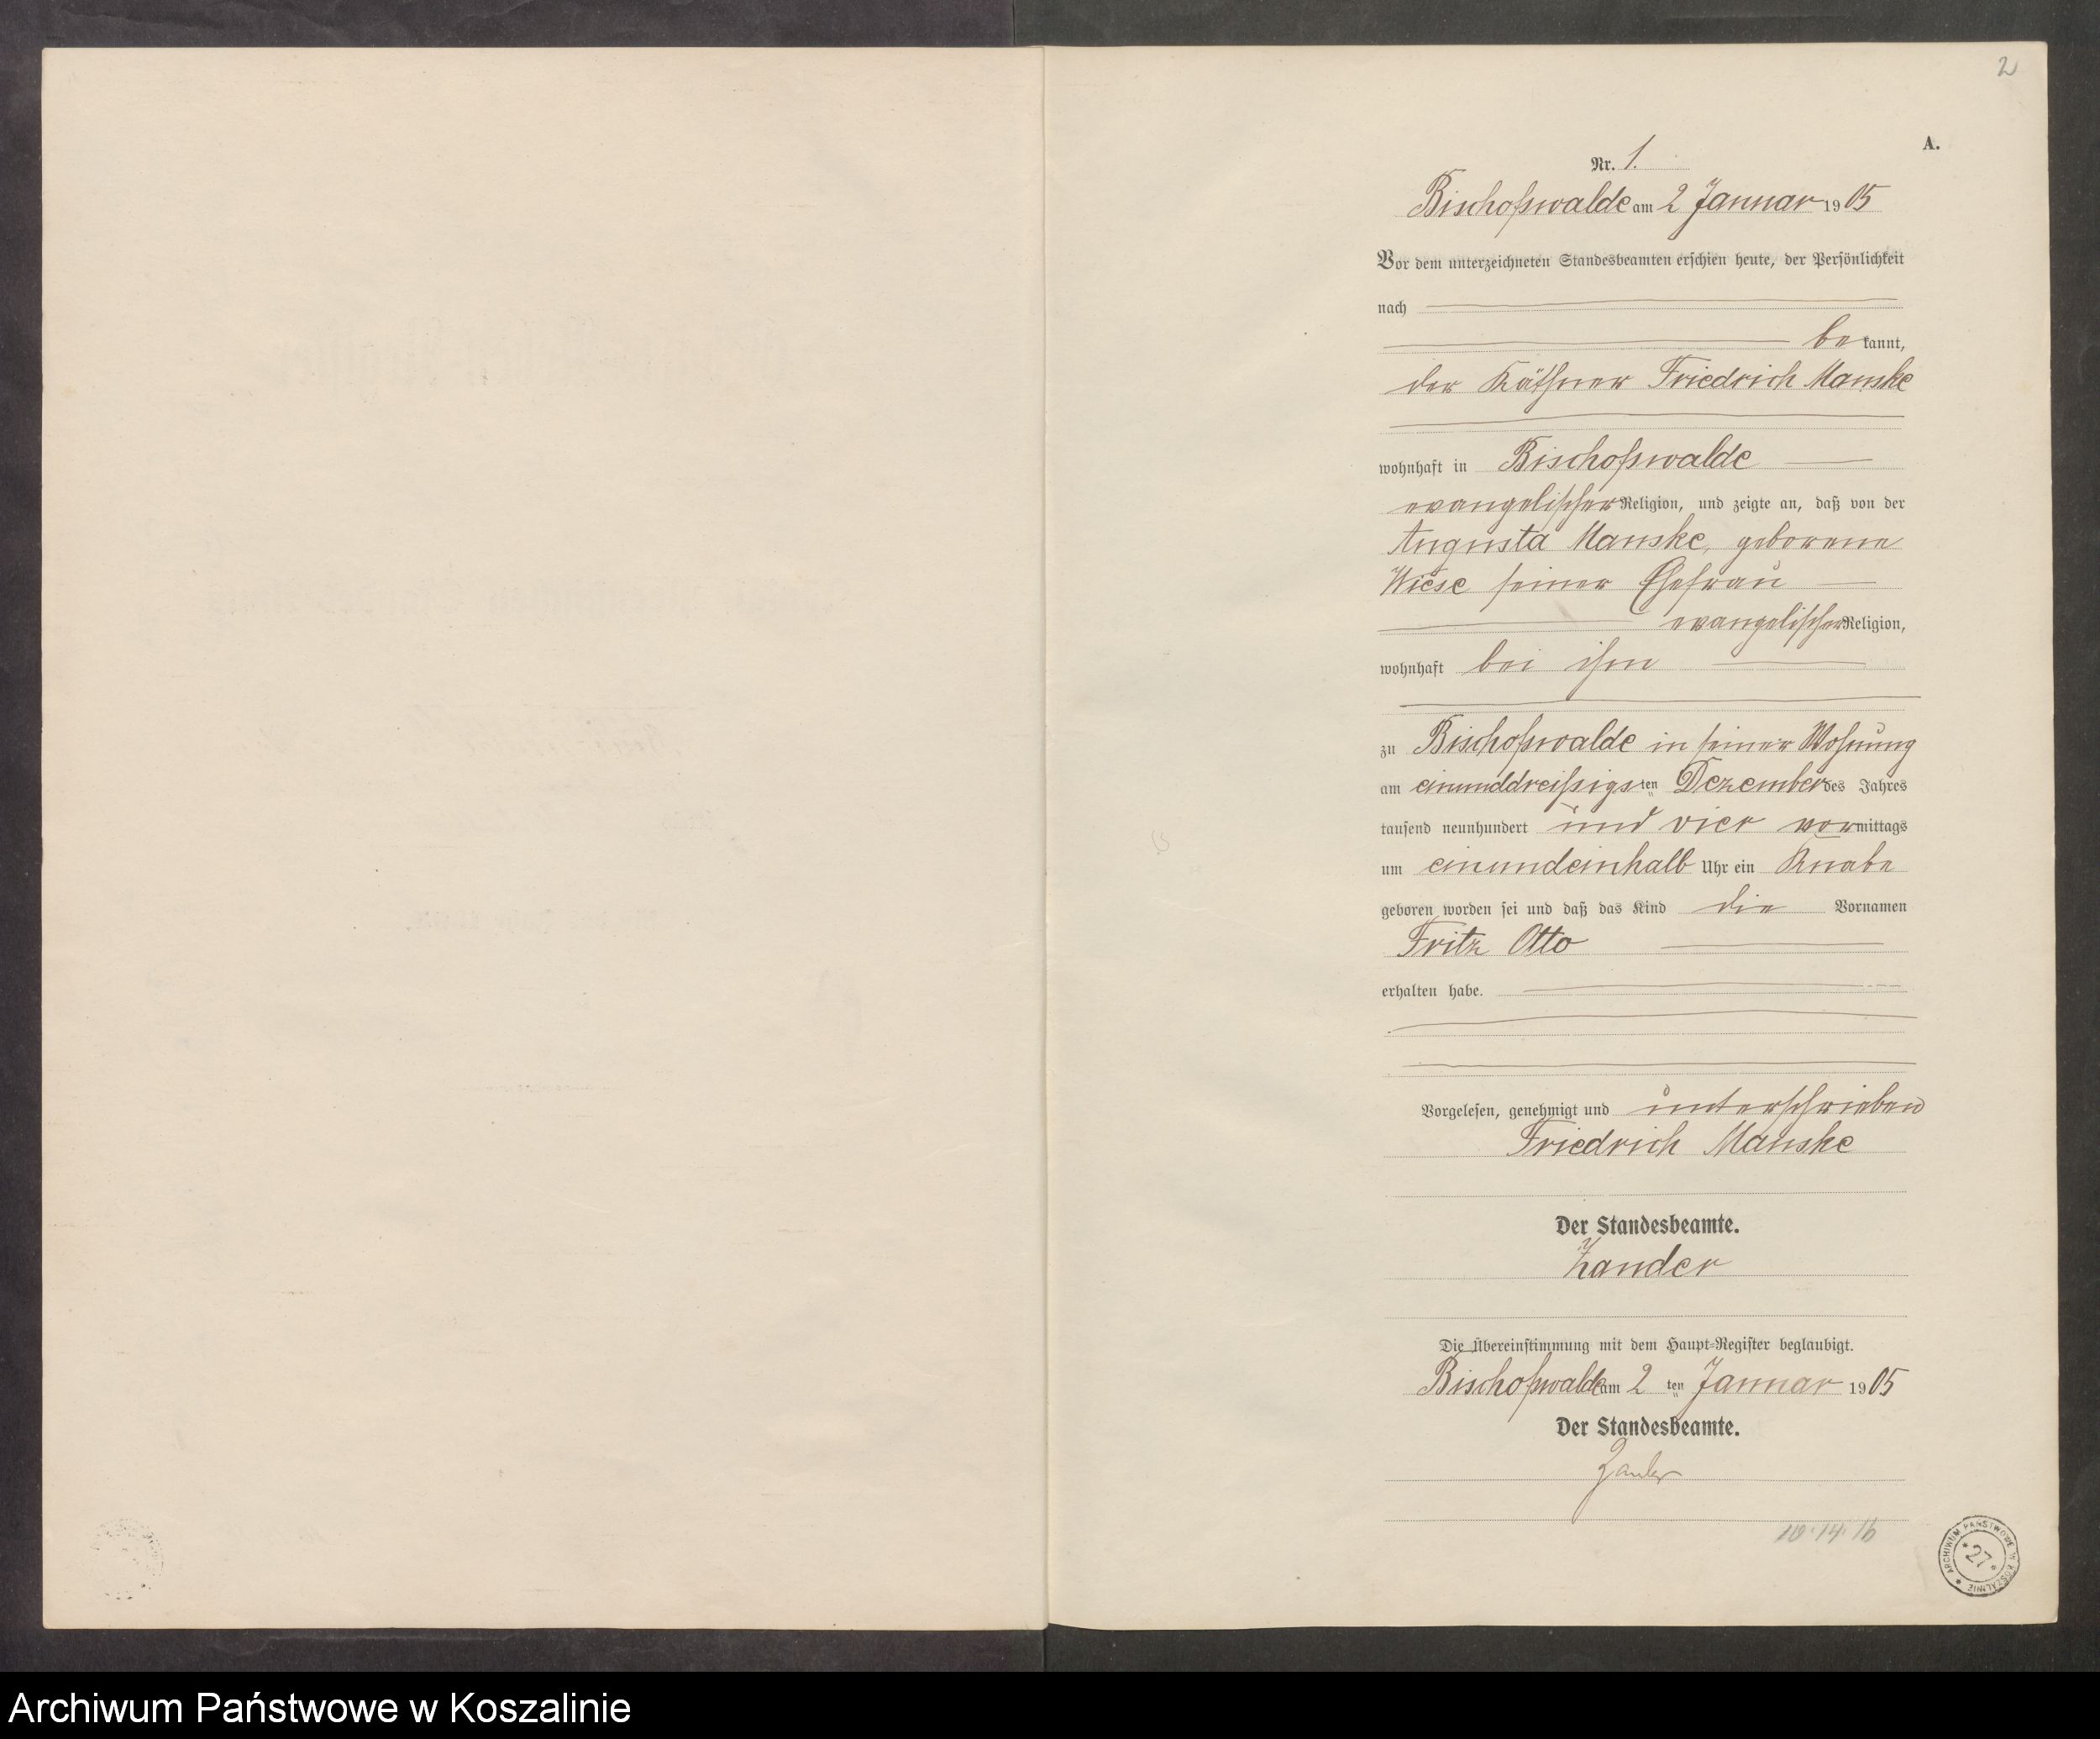 2
A.
Nr. 1.
Bischofswalde am 2 Januar 1905
Vor dem unterzeichneten Standesbeamten erschien heute, der Persönlichkeit
nach
bekannt,
der Käthner Friedrich Manske
wohnhaft in Bischofswalde
evangelischer Religion, und zeigte an, daß von der
Augusta Manske, geborene
Wiese seiner Ehefrau
evangelischer Religion,
wohnhaft bei ihm
zu Bischofswalde in seiner Wohnung
am einunddreißigsten Dezember des Jahres
tausend neunhundert und vier vormittags
um einundeinhalb Uhr ein Knabe
geboren worden sei und daß das Kind die Vornamen
Fritz Otto
erhalten habe.
Vorgelesen, genehmigt und unterschrieben
Friedrich Manske
Der Standesbeamte.
Zander
Die Übereinstimmung mit dem Haupt-Register beglaubigt.
Bischofswalde am 2ten Januar 1905
Der Standesbeamte.
Zander
10. 14. 16
ARCHIWUM PAŃSTWOWE W KOSZALINIE
* 27 *
Archiwum Państwowe w Koszalinie